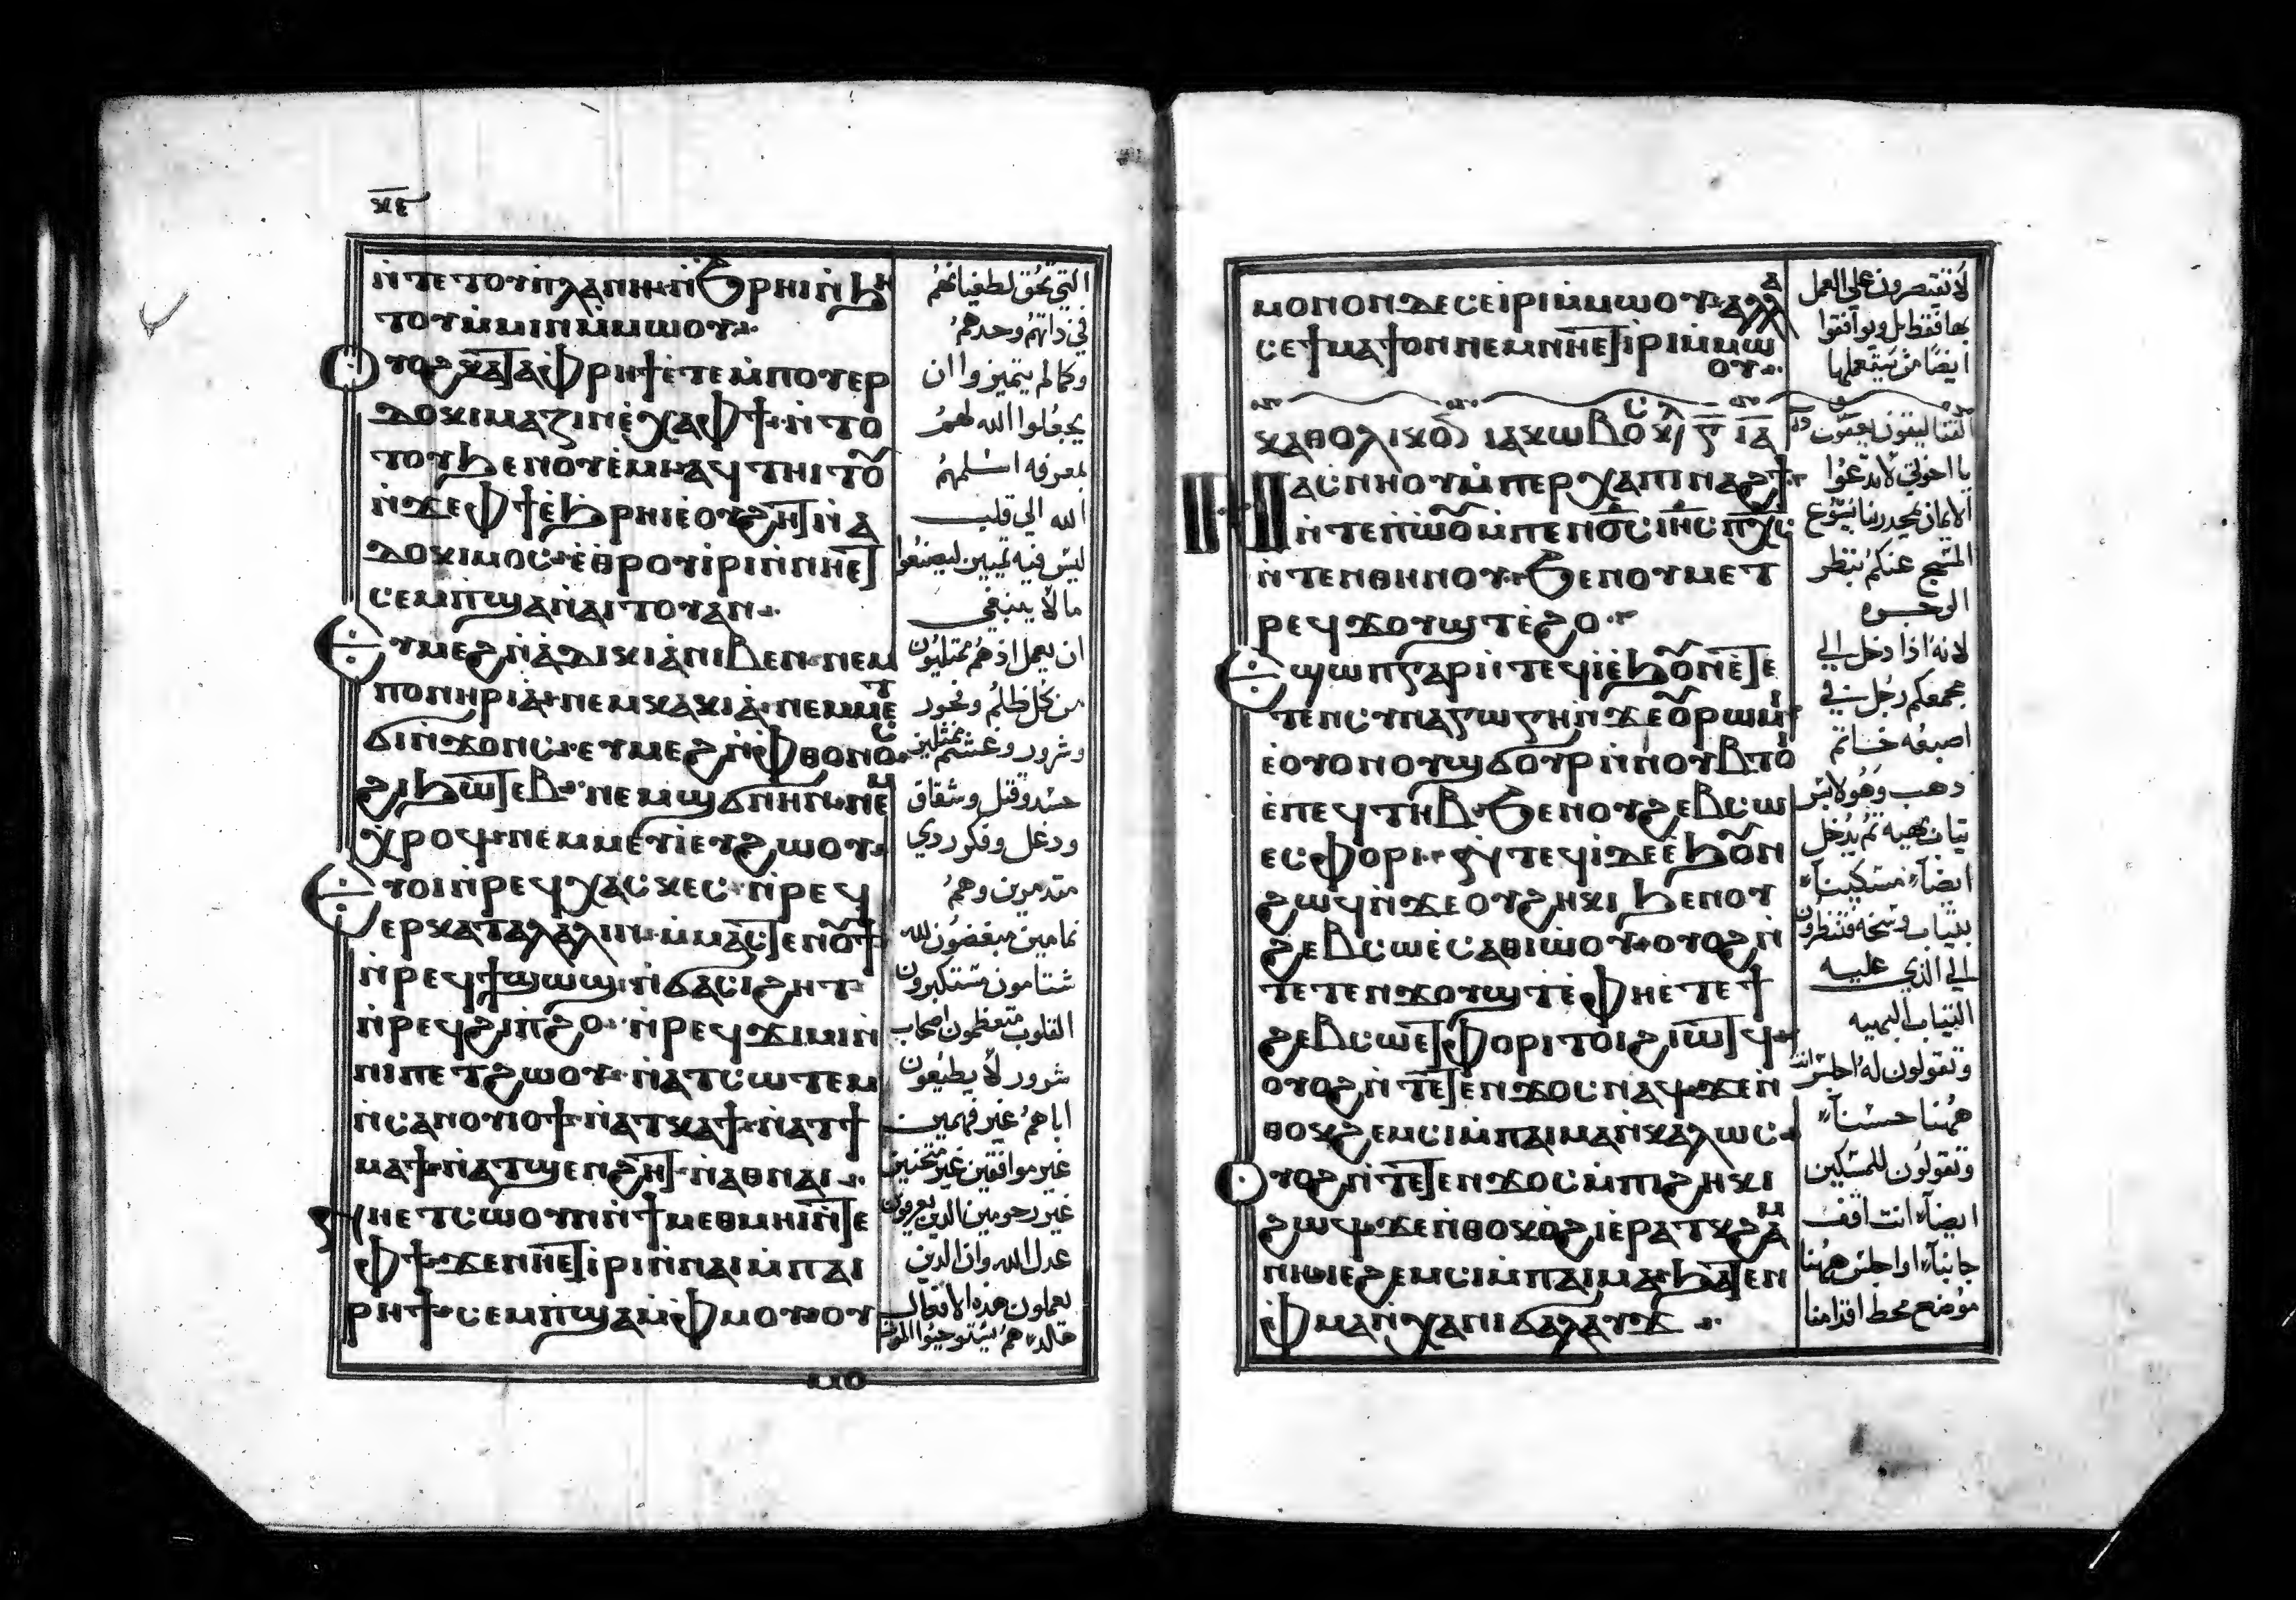 ⲝⲉ
ⲛ̀ⲧⲉⲧⲟⲩⲡ̀ⲗⲁⲛⲏ ⲛ̀ϩ̀ⲣⲏⲓ ⲛ̀ϧⲏ
ⲧⲟⲩ ⲙ̀ⲙⲓⲛ ⲙ̀ⲙⲱⲟⲩ
Ⲟⲩⲟϩ ⲕⲁⲧⲁ ⲫ̀ⲣⲏϯ ⲉ̀ⲧⲉ ⲙ̀ⲡⲟⲩⲉⲣ
ⲇⲟⲕⲓⲙⲁⲍⲓⲛ ⲉ̀ⲭⲁ ⲫϯ ⲛ̀ⲧⲟ
ⲧⲟⲩ ϧⲉⲛ ⲟⲩⲉ̀ⲙⲓ ⲁϥⲧⲏⲓⲧⲟⲩ
ⲛ̀ϫⲉ ⲫϯ ⲉ̀ϧ̀ⲣⲏⲓ ⲉ̀ⲟⲩϩⲏⲧ ⲛ̀ⲁ
ⲇⲟⲕⲓⲙⲟⲥ ⲉ̀ⲑⲣⲟⲩⲓ̀ⲣⲓ ⲛ̀ⲛⲏⲉⲧ
ⲥⲉⲙ̀ⲡϣⲁ ⲛ̀ⲁⲓⲧⲟⲩ ⲁⲛ
Ⲉⲩⲙⲉϩ ⲛ̀ⲁ̀ⲇⲓⲕⲓⲁ̀ ⲛⲓⲃⲉⲛ ⲛⲉⲙ
ⲡⲟⲛⲏⲣⲓⲁ̀ ⲛⲉⲙ ⲕⲁⲕⲓⲁ̀ ⲛⲉⲙ ⲙⲉⲧ
ϭⲓⲛ̀ϫⲟⲛⲥ ⲉⲩⲙⲉϩ ⲛ̀ⲫ̀ⲑⲟⲛⲟⲥ
ϩⲓ ϧⲱⲧⲉⲃ ⲛⲉⲙ ϣ̀ϭⲛⲏⲛ ⲛⲉⲙ
ⲭ̀ⲣⲟϥ ⲛⲉⲙ ⲙⲉⲩⲓ ⲉⲩϩⲱⲟⲩ
Ⲉⲩⲟⲓ ⲛ̀ⲣⲉϥⲭⲁⲥⲕⲉⲥ ⲛ̀ⲣⲉϥ
ⲉⲣⲕⲁⲧⲁⲗⲁⲗⲓⲛ ⲙ̀ⲙⲁⲥⲧⲉⲛⲟⲩϯ
ⲛ̀ⲣⲉϥϯϣⲱϣ ⲛ̀ϭⲁⲥⲓϩⲏⲧ
ⲛ̀ⲣⲉϥϩⲓⲡ̀ϩⲟ ⲛ̀ⲣⲉϥϫⲓⲙⲓ ⲛ̀
ⲛⲓⲡⲉⲧϩⲱⲟⲩ ⲛ̀ⲁⲧⲥⲱⲧⲉⲙ
ⲛ̀ⲥⲁ ⲛⲟⲩⲓⲟϯ ⲛ̀ⲁⲧⲕⲁϯ ⲛ̀ⲁⲧϯ
ⲙⲁϯ ⲛ̀ⲁⲧϣⲉⲛϩⲏⲧ ⲛ̀ⲁⲑⲛⲁⲓ
ⲛⲏⲉⲧⲥⲱⲟⲩⲛ ⲛ̀ϯⲙⲉⲑⲙⲏⲓ ⲛ̀ⲧⲉ
ⲫϯ ϫⲉ ⲛⲏⲉⲧⲓ̀ⲣⲓ ⲛ̀ⲛⲁⲓ ⲙ̀ⲡⲁⲓ
ⲣⲏϯ ⲥⲉⲙ̀ⲡϣⲁ ⲙ̀ⲫ̀ⲙⲟⲩ ⲟⲩ
التي تحق لطغيانهم
في ذاتهم وحدهم
وكما لم يتميزوا ان
يجعلوا الله لهم
لمعرفه اسلمهم
الله الي قلب
ليس فيه تمييز ليصنعوا
ما لا ينبغي
ان يعمل اذهم ممتليون
من كل ظلم وفجور
وشرور وغشم ممتليين
حسد وقتل وشقاق
ودغل وفكر ردي
متدمرين وهم
نمامين مبغضون لله
شتامون مستكبرون
القلوب متعظمون اصحاب
شرور لا يطيعون
اباهم غير فهمين
غير موافقين غير متحننين
غير رحومين الدين يعرفون
عدل الله وان الدين
يعملون هذه الافعال
ⲙⲟⲛⲟⲛ ⲇⲉ ⲥⲉⲓ̀ⲣⲓ ⲙ̀ⲙⲱⲟⲩ ⲁⲗⲗⲁ
ⲥⲉϯⲙⲁϯ ⲟⲛ ⲛⲉⲙ ⲛⲏⲉⲧⲓ̀ⲣⲓ ⲙ̀ⲙⲱ
ⲟⲩ
ⲕⲁⲑⲟⲗⲓⲕⲟⲛ ⲓⲁⲕⲱⲃⲟⲥ
Ⲛⲁⲥⲛⲏⲟⲩ ⲙ̀ⲡⲉⲣⲭⲁ ⲡⲓⲛⲁϩϯ
ⲛ̀ⲧⲉ ⲡ̀ⲱⲟⲩ ⲙ̀ⲡⲉⲛⲟ̅ⲥ̅ ⲓⲏ̅ⲥ̅ ⲡⲭ̅ⲥ̅
ⲛ̀ⲧⲉⲛⲑⲏⲛⲟⲩ ϩⲉⲛ ⲟⲩⲙⲉⲧ
ⲣⲉϥϫⲟⲩϣⲧ ⲉ̀ϩⲟ
Ⲉϣⲱⲡ ⲅⲁⲣ ⲛ̀ⲧⲉϥⲓ̀ ⲉ̀ϧⲟⲩⲛ ⲉ̀ⲧⲉ
ⲧⲉⲛⲥⲩⲛⲁⲅⲱⲅⲏ ⲛ̀ϫⲉ ⲟⲩⲣⲱⲙⲓ
ⲉ̀ⲟⲩⲟⲛ ⲟⲩϣϭⲟⲩⲣ ⲛ̀ⲛⲟⲩⲃ ⲧⲟⲓ
ⲉ̀ⲡⲉϥⲧⲏⲃ ϩⲉⲛ ⲟⲩϩⲉⲃⲥⲱ
ⲉⲥⲫⲟⲣⲓ ⲛ̀ⲧⲉϥⲓ̀ ⲇⲉ ⲉ̀ϧⲟⲩⲛ
ϩⲱϥ ⲛ̀ϫⲉ ⲟⲩϩⲏⲕⲓ ϧⲉⲛ ⲟⲩ
ϩⲉⲃⲥⲱ ⲉ̀ⲥⲁⲑⲓⲱⲟⲩ ⲟⲩⲟϩ ⲛ̀
ⲧⲉⲧⲉⲛϫⲟⲩϣⲧ ⲉ̀ⲫⲏ ⲉⲧⲉ ϯ
ϩⲉⲃⲥⲱ ⲉⲧⲫⲟⲣⲓ ⲧⲟⲓ ϩⲓⲱⲧϥ
ⲟⲩⲟϩ ⲛ̀ⲧⲉⲧⲉⲛϫⲟⲥ ⲛⲁϥ ϫⲉ ⲛ̀
ⲑⲟⲕ ϩⲉⲙⲥⲓ ⲙ̀ⲡⲁⲓⲙⲁ ⲛ̀ⲕⲁⲗⲱⲥ
Ⲟⲩⲟϩ ⲛ̀ⲧⲉⲧⲉⲛϫⲟⲥ ⲙ̀ⲡⲓϩⲏⲕⲓ
ϩⲱϥ ϫⲉ ⲛ̀ⲑⲟⲕ ⲟ̀ϩⲓ ⲉ̀ⲣⲁⲧⲕ ϩⲁⲙ
ⲛⲏ ⲓⲉ ϩⲉⲙⲥⲓ ⲙ̀ⲡⲁⲓⲙⲁ ϧⲁⲧⲉⲛ
ⲫ̀ⲙⲁ ⲛ̀ⲭⲁⲛⲓϭⲁⲗⲁⲩϫ
لا يقتصرون علي العمل
بها فقط بل ويوافقوا
ايضا من يعملها
يا اخوتي لا تدعوا
الايمان بمجد ربنا يسوع
المسيح عندكم بنظر
الوجوه
لانه اذا دخل الي
مجمعكم رجل في
اصبعه خاتم
دهب وهو لابس
تياب بهيه ثم يدخل
ايضا مسكينا
بثياب وسخه فتنظرون
الي الذي عليه
الثياب البهيه
وتقولون له اجلس انت
ههنا حسنا
وتقولون للمسكين
ايضا انت اقف
جانبا او اجلس ههنا
موضع محط اقدامنا